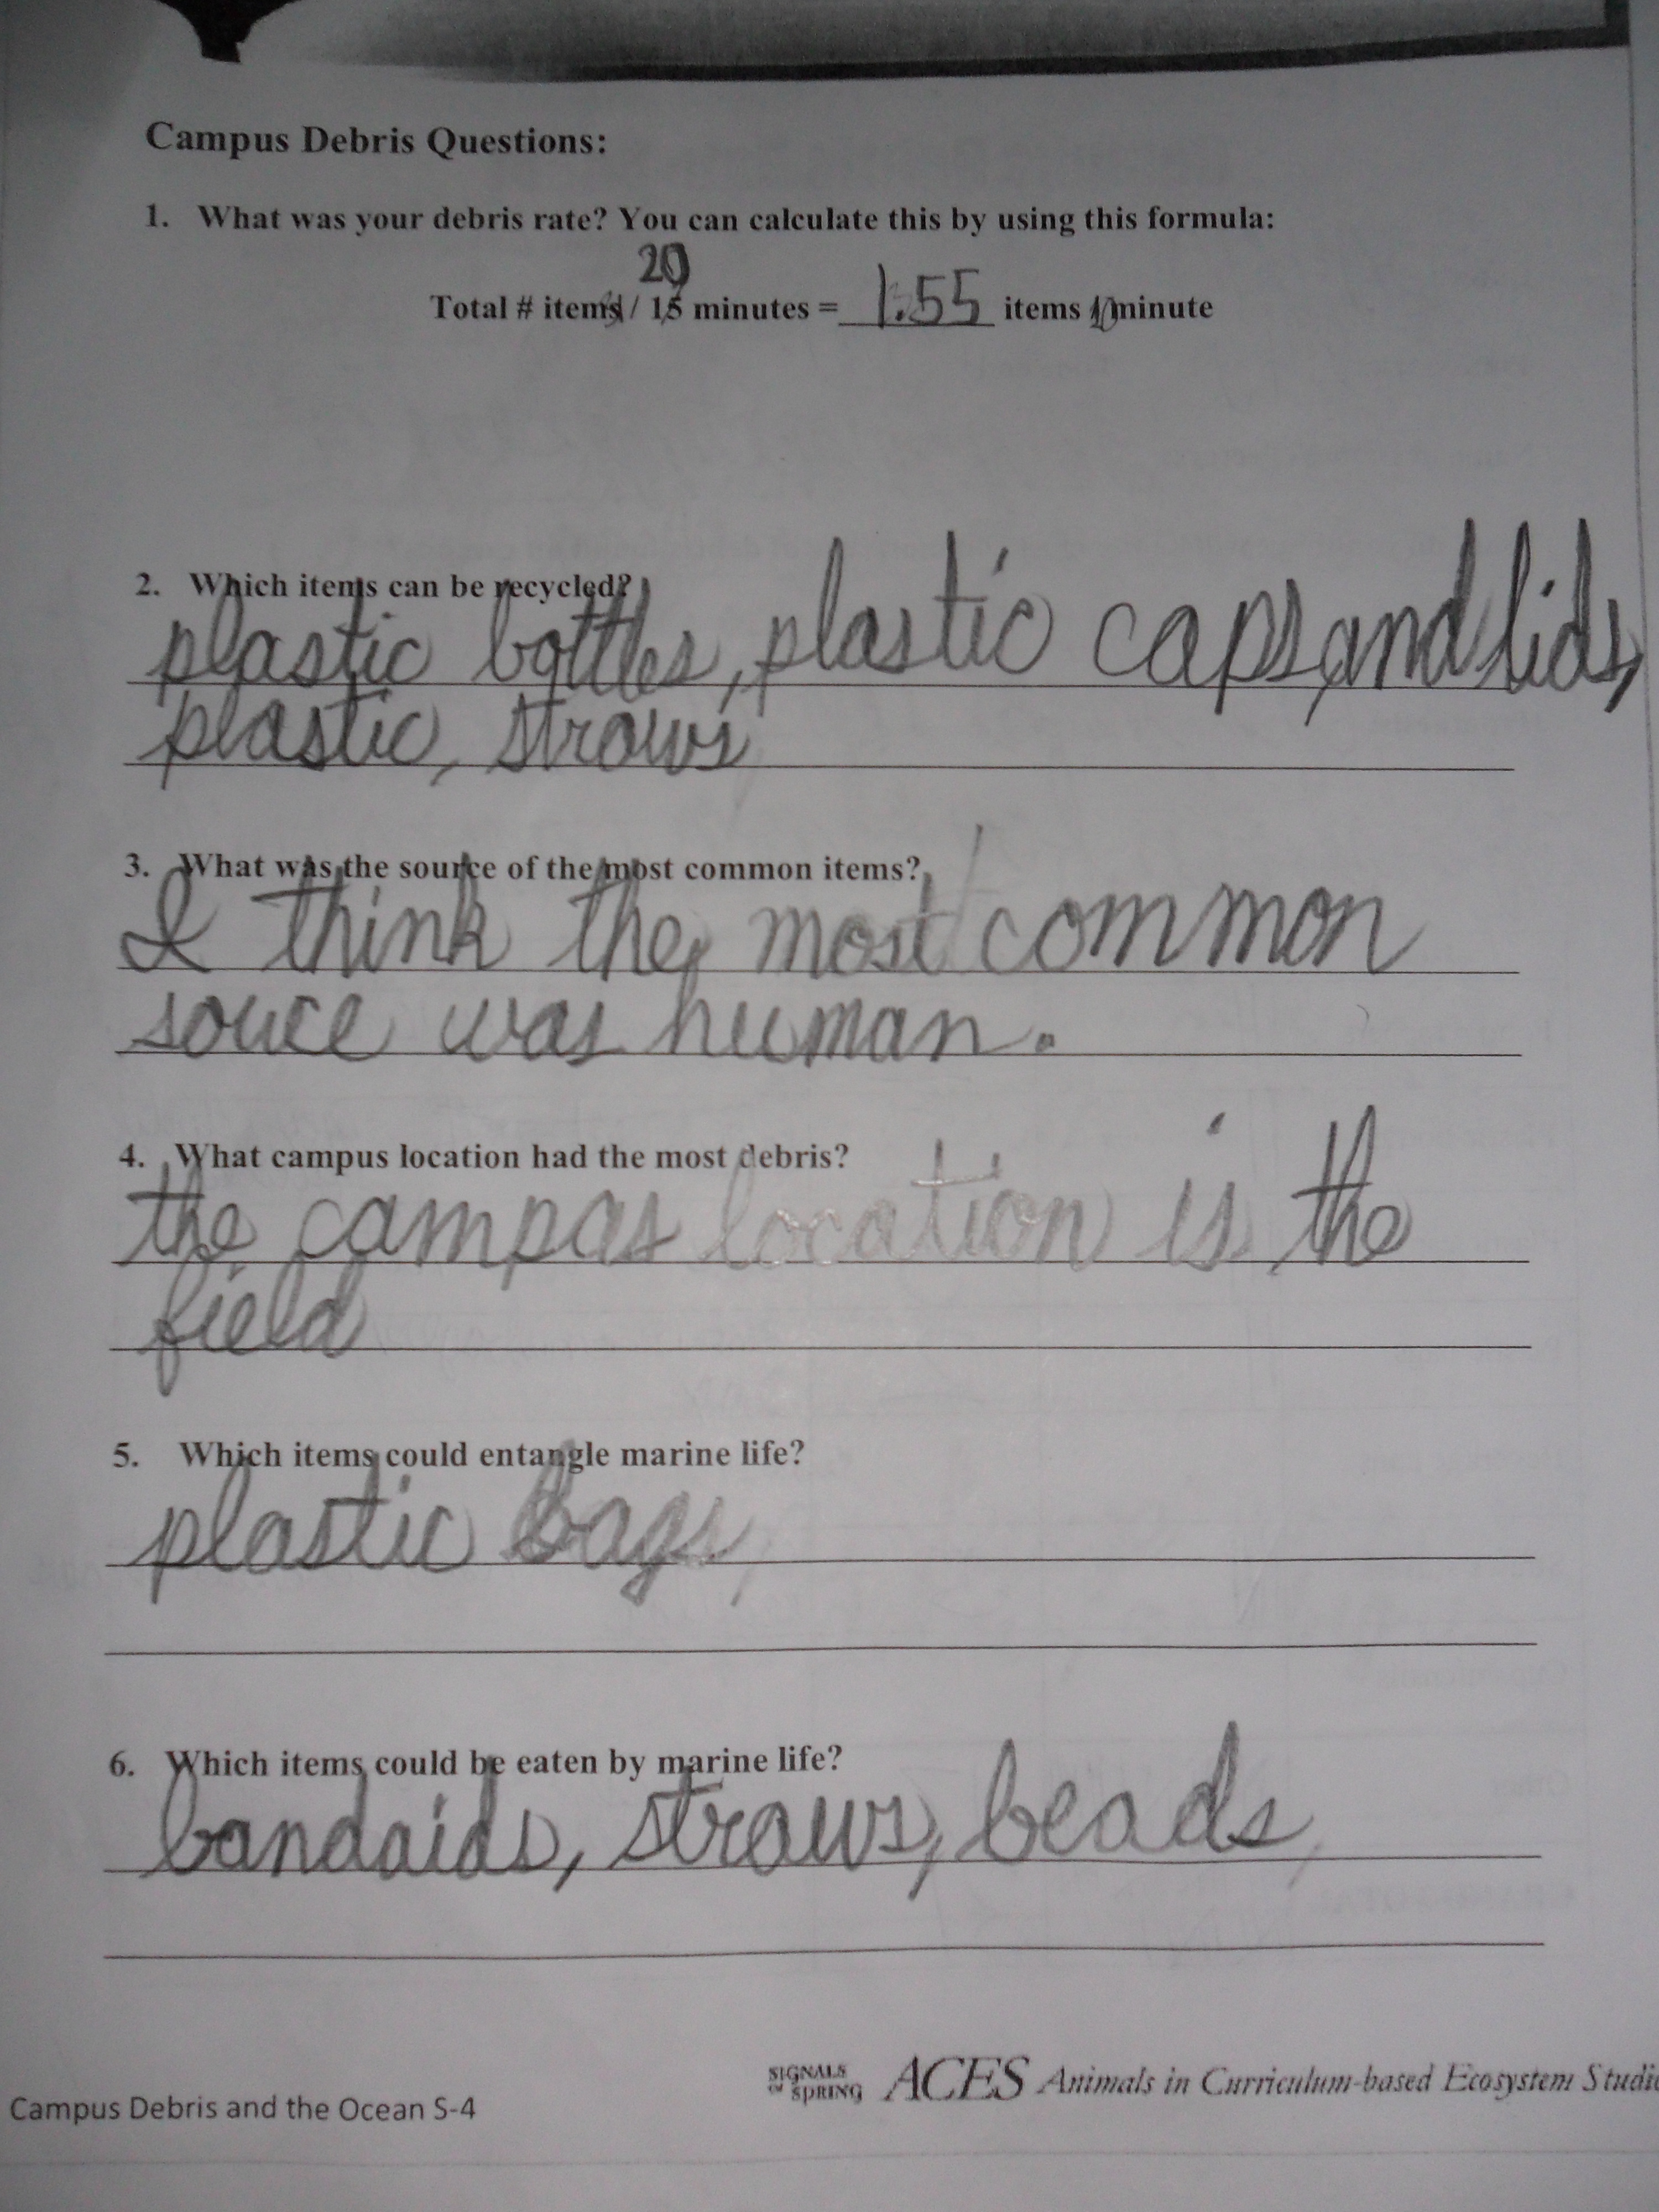 Campus Debris Questions:
1. What was your debris rate? You can calculate this by using this formula:
20
Total # items / 15 minutes = 1.55 items / minute
2. Which items can be recycled?
plastic bottles, plastic caps, and lids,
plastic, straws
3. What was the source of the most common items?
I think the most common
souce was human.
4. What campus location had the most debris?
the campas location is the
field
5. Which items could entangle marine life?
plastic bags,
6. Which items could be eaten by marine life?
bandaids, straws, beads,
SIGNALS
OF SPRING ACES Animals in Curriculum-based Ecosystem Studi
Campus Debris and the Ocean S-4